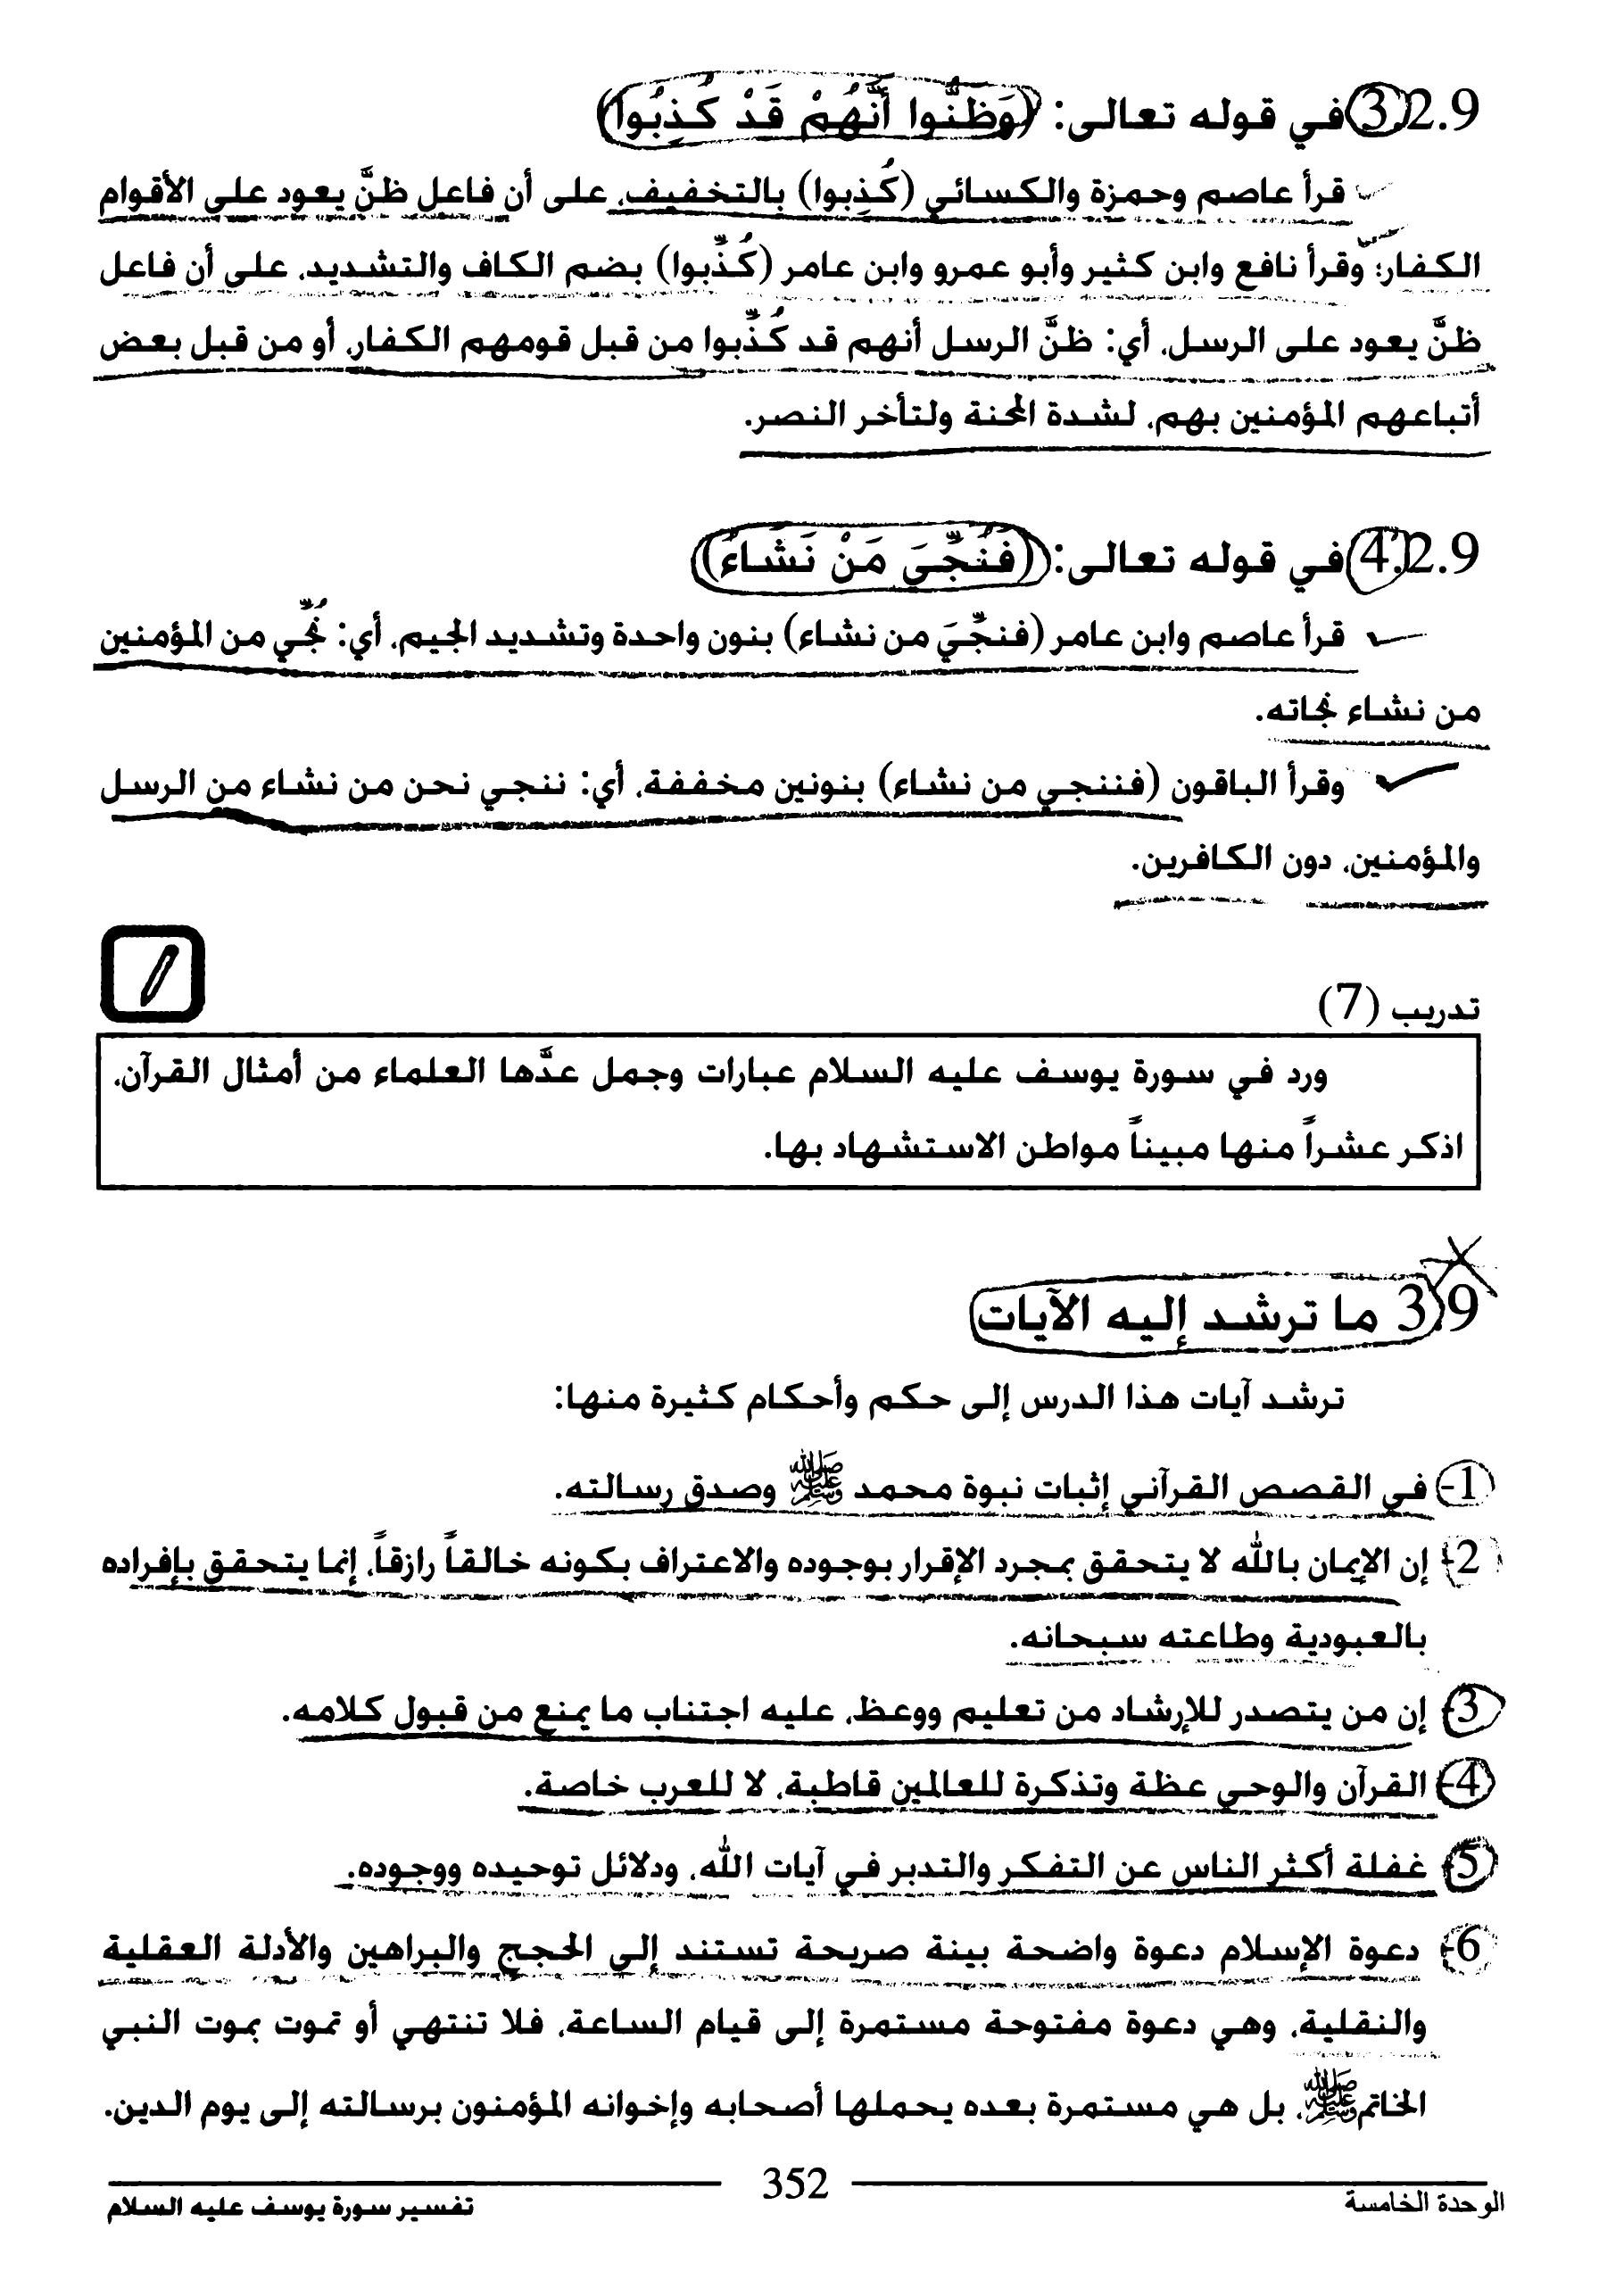 3.2.9 في قوله تعالى: (وَظَنُّوا أَنَّهُمْ قَدْ كُذِبُوا)
قرأ عاصم وحمزة والكسائي (كُذِبوا) بالتخفيف، على أن فاعل ظنَّ يعود على الأقوام
الكفار؛ وقرأ نافع وابن كثير وأبو عمرو وابن عامر (كُذِّبوا) بضم الكاف والتشديد، على أن فاعل
ظنَّ يعود على الرسل، أي: ظنَّ الرسل أنهم قد كُذِّبوا من قبل قومهم الكفار، أو من قبل بعض
أتباعهم المؤمنين بهم، لشدة المحنة ولتأخر النصر.
4.2.9 في قوله تعالى: (فَنُجِّيَ مَنْ نَشَاءُ)
قرأ عاصم وابن عامر (فنجِّيَ من نشاء) بنون واحدة وتشديد الجيم، أي: نُجِّي من المؤمنين
من نشاء نجاته.
وقرأ الباقون (فننجي من نشاء) بنونين مخففة، أي: ننجي نحن من نشاء من الرسل
والمؤمنين، دون الكافرين.
تدريب (7)
ورد في سورة يوسف عليه السلام عبارات وجمل عدَّها العلماء من أمثال القرآن،
اذكر عشراً منها مبيناً مواطن الاستشهاد بها.
3.9 ما ترشد إليه الآيات
ترشد آيات هذا الدرس إلى حكم وأحكام كثيرة منها:
1- في القصص القرآني إثبات نبوة محمد ﷺ وصدق رسالته.
2- إن الإيمان بالله لا يتحقق بمجرد الإقرار بوجوده والاعتراف بكونه خالقاً رازقاً، إنما يتحقق بإفراده
بالعبودية وطاعته سبحانه.
3- إن من يتصدر للإرشاد من تعليم ووعظ، عليه اجتناب ما يمنع من قبول كلامه.
4- القرآن والوحي عظة وتذكرة للعالمين قاطبة، لا للعرب خاصة.
5- غفلة أكثر الناس عن التفكر والتدبر في آيات الله، ودلائل توحيده ووجوده.
6- دعوة الإسلام دعوة واضحة بينة صريحة تستند إلى الحجج والبراهين والأدلة العقلية
والنقلية، وهي دعوة مفتوحة مستمرة إلى قيام الساعة، فلا تنتهي أو تموت بموت النبي
الخاتم ﷺ، بل هي مستمرة بعده يحملها أصحابه وإخوانه المؤمنون برسالته إلى يوم الدين.
الوحدة الخامسة 352 تفسير سورة يوسف عليه السلام